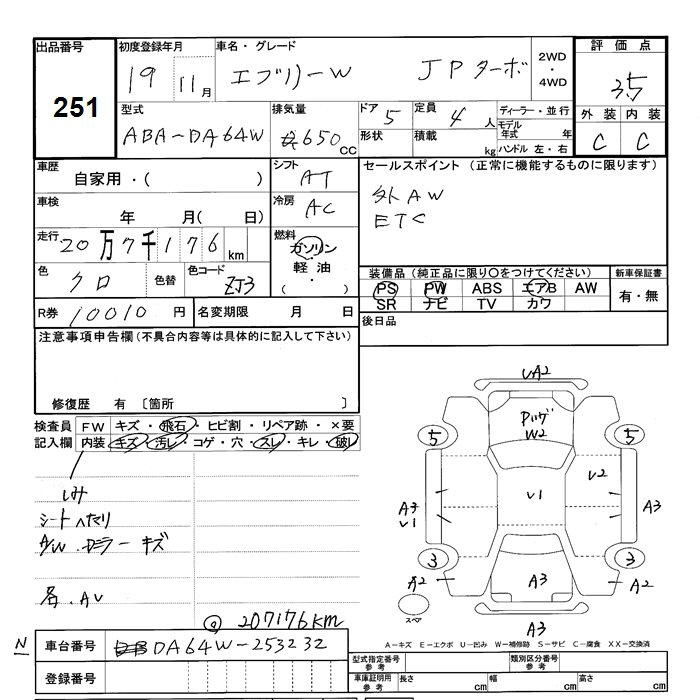 出品番号
251
初度登録年月
19 11月
車名・グレード
エブリーW JPターボ
2WD
・
4WD
評価点
3.5
外装 内装
C C
型式
ABA-DA64W
排気量
650cc
ドア
5
形状
定員
4人
積載 kg
ディーラー・並行
モデル
年式 年
ハンドル 左・右
車歴
自家用・( )
シフト
AT
セールスポイント (正常に機能するものに限ります)
外AW
ETC
車検
年 月( 日)
冷房
AC
走行
20万7千176km
燃料
ガソリン
・
軽油
・
( )
色
クロ
色替
色コード
ZJ3
装備品 (純正品に限り〇をつけてください)
PS PW ABS エアB AW
SR ナビ TV カワ
新車保証書
有・無
R券 10010円
名変期限 月 日
後日品
注意事項申告欄(不具合内容等は具体的に記入して下さい)
修復歴 有 〔箇所 〕
検査員
記入欄
FW キズ・飛石・ヒビ割・リペア跡・×要
内装 キズ・汚レ・コゲ・穴・スレ・キレ・破レ
しみ
シートヘタリ
A/W.ドミラーキズ
各.AU
@ 207176km
N
車台番号 DA64W-253232
登録番号
UA2
Pいげ
W2
5 5
U2
A3
U1
U1
A3
3 3
A2
A3
A2
スペア
A3
A-キズ E-エクボ U-凹み W-補修跡 S-サビ C-腐食 XX-交換済
型式指定番号
参考
類別区分番号
参考
車庫証明用
参考
長さ cm
幅 cm
高さ cm